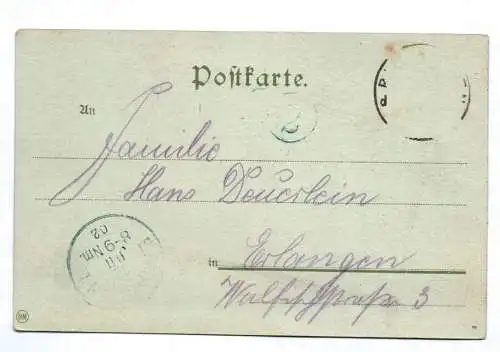 Postkarte.
An
Familie
Hans Deuerlein
in Erlangen
8-9 Nm.
02